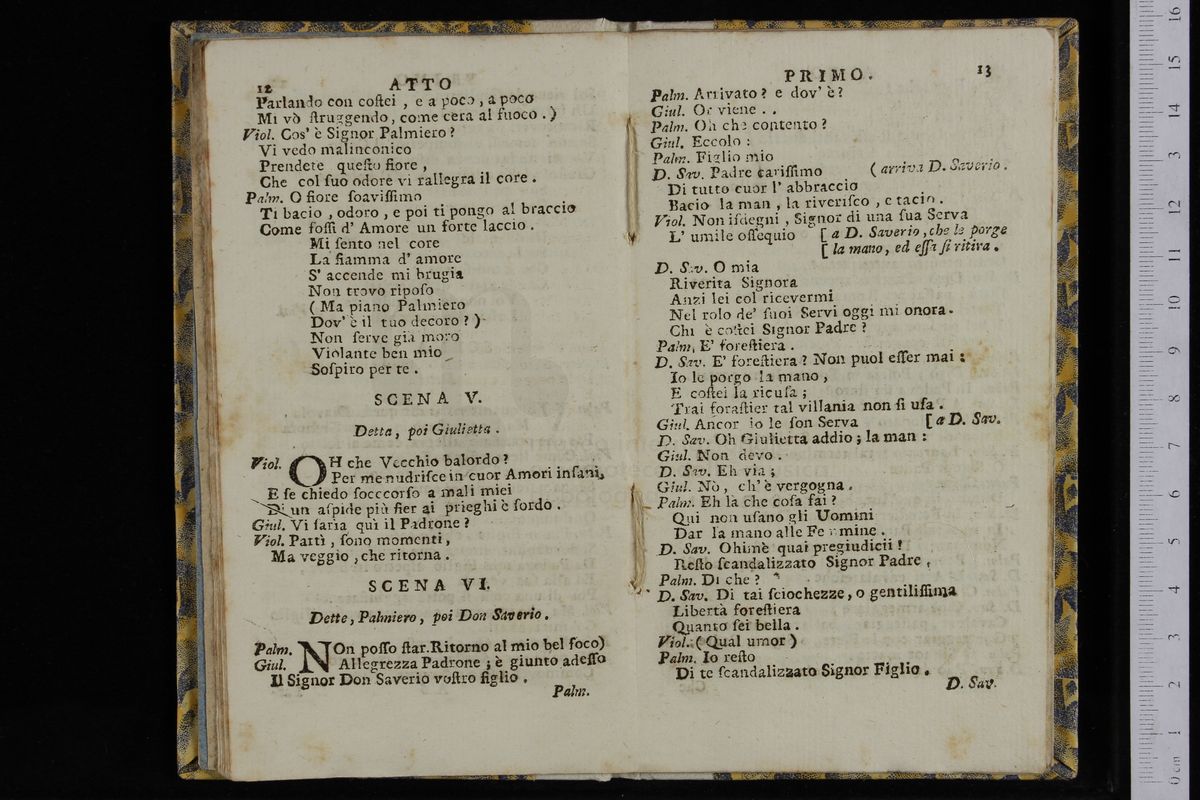 12 ATTO
Parlando con coſtei , e a poco , a poco
Mi vò ſtruggendo, come cera al fuoco . )
Viol. Cos' è Signor Palmiero ?
Vi vedo malinconico
Prendete queſto fiore ,
Che col ſuo odore vi rallegra il core .
Palm. O fiore ſoaviſſimo
Ti bacio , odoro , e poi ti pongo al braccio
Come foſſi d' Amore un forte laccio .
Mi ſento nel core
La fiamma d' amore
S' accende mi brugia
Non trovo ripoſo
( Ma piano Palmiero
Dov' è il tuo decoro ? )
Non ſerve già moro
Violante ben mio
Soſpiro per te .
SCENA V.
Detta, poi Giulietta .
Viol. OH che Vecchio balordo ?
Per me nudriſce in cuor Amori inſani,
E ſe chiedo ſocccorſo a mali miei
Di un aſpide più fier ai prieghi è ſordo .
Giul. Vi ſaria quì il Padrone ?
Viol. Partì , ſono momenti,
Ma veggio , che ritorna .
SCENA VI.
Dette, Palmiero, poi Don Saverio.
Palm. NOn poſſo ſtar.Ritorno al mio bel foco)
Giul. Allegrezza Padrone ; è giunto adeſſo
Il Signor Don Saverio voſtro figlio .
Palm.
PRIMO. 13
Palm. Arrivato ? e dov' è ?
Giul. Or viene . .
Palm. Oh che contento ?
Giul. Eccolo :
Palm. Figlio mio
D. Sav. Padre cariſſimo ( arriva D. Saverio .
Di tutto cuor l' abbraccio
Bacio la man , la riveriſco , e tacio .
Viol. Non iſdegni , Signor di una ſua Serva
L' umile oſſequio [ a D. Saverio , che le porge
[ la mano, ed eſſa ſi ritira .
D. Sav. O mia
Riverita Signora
Anzi lei col ricevermi
Nel rolo de' ſuoi Servi oggi mi onora.
Chi è coſtei Signor Padre ?
Palm. E' foreſtiera .
D. Sav. E' foreſtiera ? Non puol eſſer mai :
Io le porgo la mano ,
E coſtei la ricuſa ;
Trai foraſtier tal villania non ſi uſa .
Giul. Ancor io le ſon Serva [ a D. Sav.
D. Sav. Oh Giulietta addio ; la man :
Giul. Non devo .
D. Sav. Eh via ;
Giul. Nò , ch' è vergogna .
Palm. Eh là che coſa fai ?
Qui non uſano gli Uomini
Dar la mano alle Femmine .
D. Sav. Ohimè quai pregiudicii !
Reſto ſcandalizzato Signor Padre .
Palm. Di che ?
D. Sav. Di tai ſciochezze, o gentiliſſima
Libertà foreſtiera
Quanto ſei bella .
Viol. ( Qual umor )
Palm. Io reſto
Di te ſcandalizzato Signor Figlio .
D. Sav.
0 cm 1 2 3 4 5 6 7 8 9 10 11 12 13 14 15 16